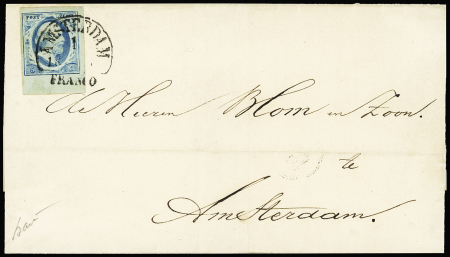 POST
AMSTERDAM
1
FRANCO
de Heeren Blom en Zoon.
te
Amsterdam.